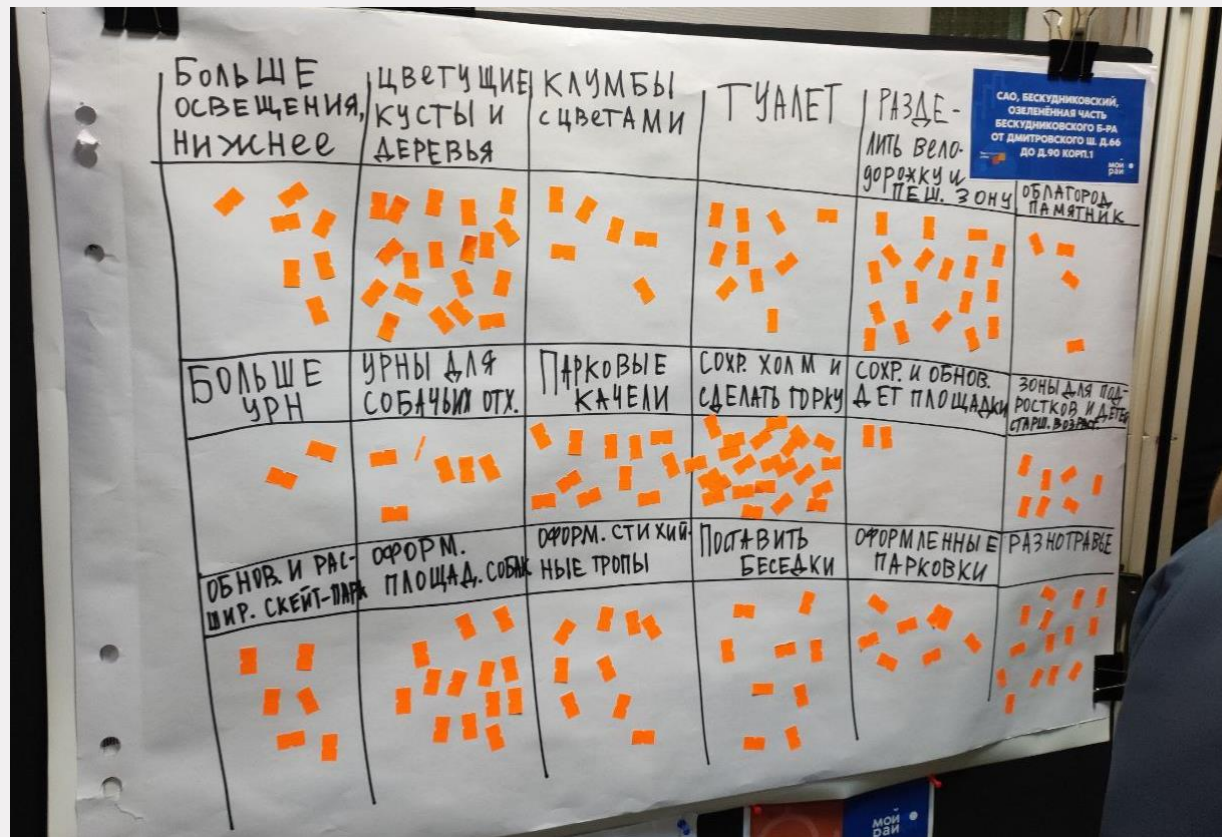 БОЛЬШЕ
ОСВЕЩЕНИЯ,
НИЖНЕЕ
ЦВЕТУЩИЕ
КУСТЫ И
ДЕРЕВЬЯ
КЛУМБЫ
С ЦВЕТАМИ
ТУАЛЕТ
РАЗДЕ-
ЛИТЬ ВЕЛО-
ДОРОЖКУ И
ПЕШ. ЗОНУ
САО, БЕСКУДНИКОВСКИЙ,
ОЗЕЛЕНЁННАЯ ЧАСТЬ
БЕСКУДНИКОВСКОГО Б-РА
ОТ ДМИТРОВСКОГО Ш. Д.66
ДО Д.90 КОРП.1
МОЙ
РАЙ
ОБЛАГОРОД.
ПАМЯТНИК
БОЛЬШЕ
УРН
УРНЫ ДЛЯ
СОБАЧЬИХ ОТХ.
ПАРКОВЫЕ
КАЧЕЛИ
СОХР. ХОЛМ И
СДЕЛАТЬ ГОРКУ
СОХР. И ОБНОВ.
ДЕТ ПЛОЩАДКИ
ЗОНЫ ДЛЯ ПОД-
РОСТКОВ И ДЕТЕЙ
СТАРШ. ВОЗРАСТ.
ОБНОВ. И РАС-
ШИР. СКЕЙТ-ПАРК
ОФОРМ.
ПЛОЩАД. СОБАК
ОФОРМ. СТИХИЙ-
НЫЕ ТРОПЫ
ПОСТАВИТЬ
БЕСЕДКИ
ОФОРМЛЕННЫЕ
ПАРКОВКИ
РАЗНОТРАВЬЕ
МОЙ
РАЙ